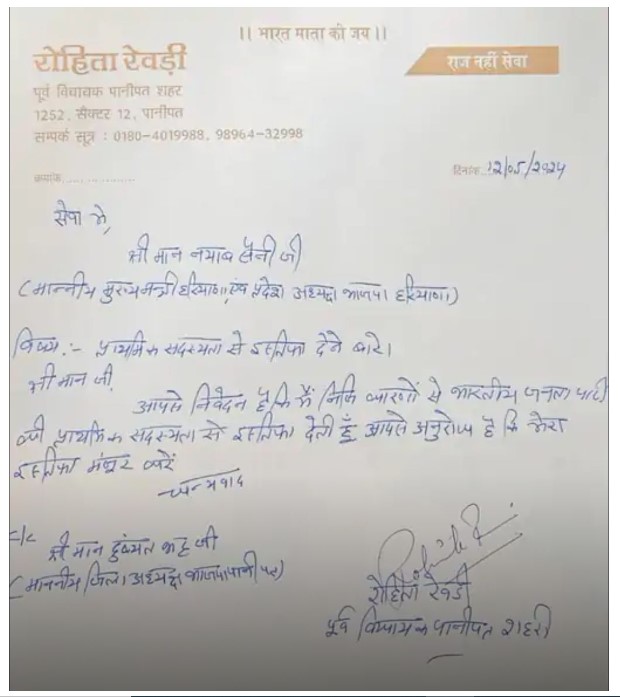 ।। भारत माता की जय ।।
रोहिता रेवड़ी
राज नहीं सेवा
पूर्व विधायक पानीपत शहर
1252, सैक्टर 12, पानीपत
सम्पर्क सूत्र : 0180-4019988, 98964-32998
क्रमांक..................
दिनांक 12/05/2024
सेवा मे,
श्री मान नयाब सैनी जी
(माननीय मुख्यमन्त्री हरियाणा, एवं प्रदेश अध्यक्ष भाजपा हरियाणा)
विषय:- प्राथमिक सदस्यता से इस्तिफा देने बारे।
श्री मान जी,
आपसे निवेदन है कि मैं निजि कारणों से भारतीय जनता पार्टी
की प्राथमिक सदस्यता से इस्तिफा देती हूँ आपसे अनुरोध है कि मेरा
इस्तिफा मंजूर करें
धन्यवाद
c/c
श्री मान जी
(माननीय जिला अध्यक्ष भाजपा पानीपत)
रोहिता रेवडी
पूर्व विधायक पानीपत शहरी